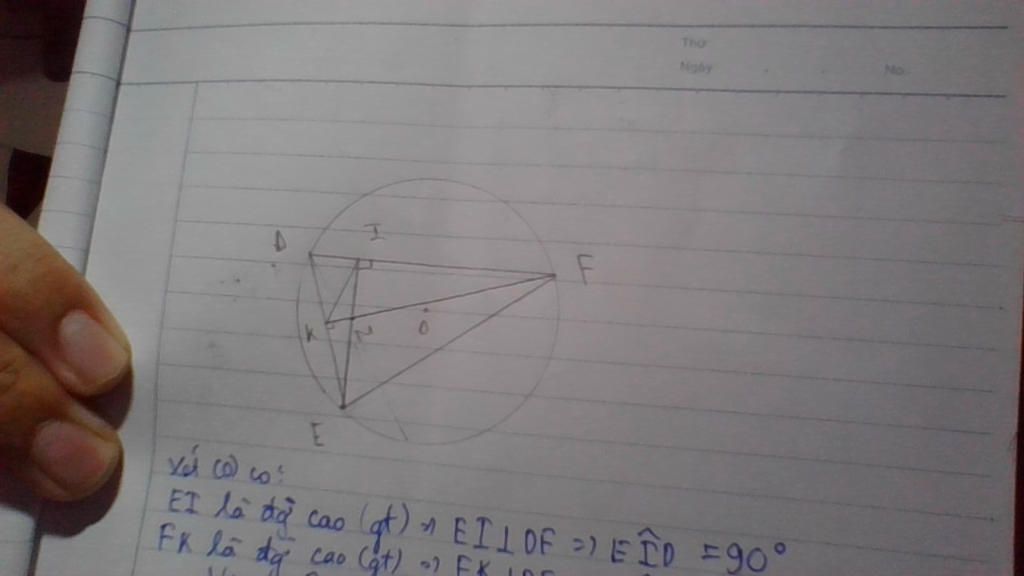 Thứ
Ngày No.
D I F
K O
E
Với (O) có:
EI là đg cao (gt) => EI⊥DF => EÎD = 90°
FK là đg cao (gt) => FK⊥DE